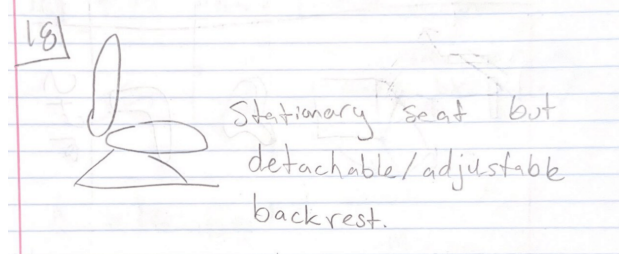 18
Stationary seat but
detachable/adjustable
backrest.